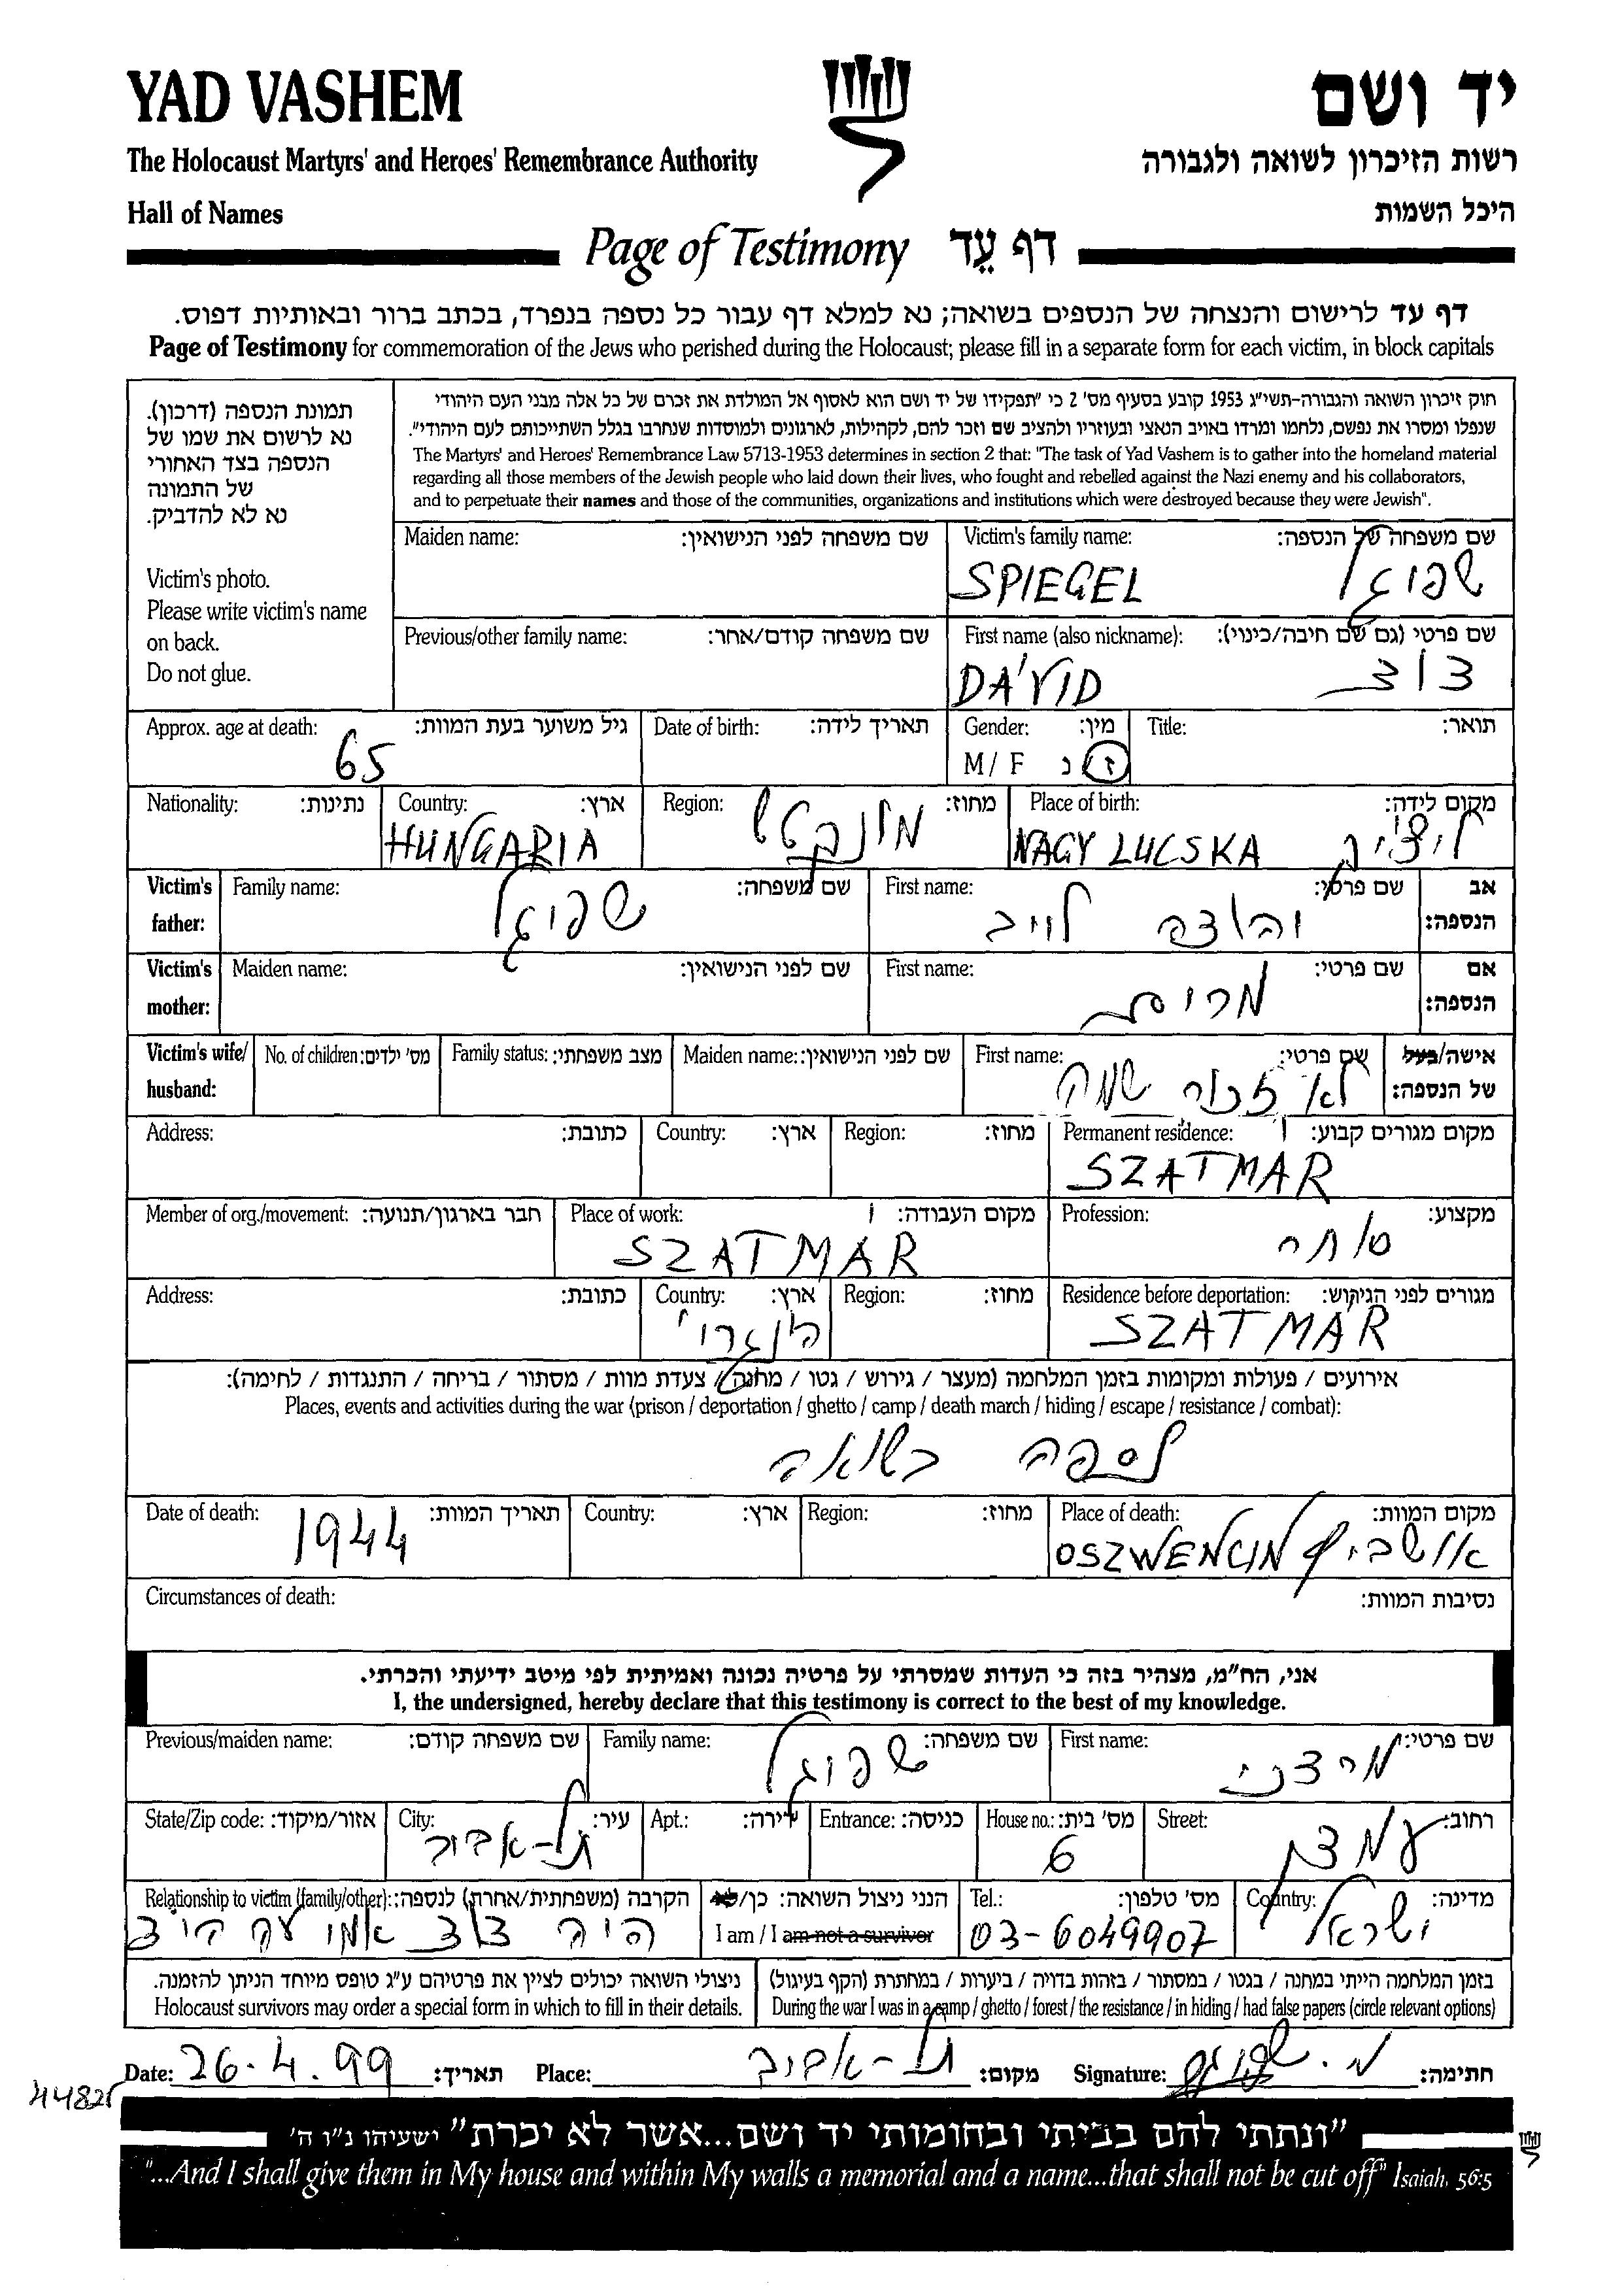 YAD VASHEM
יד ושם
The Holocaust Martyrs' and Heroes' Remembrance Authority
רשות הזיכרון לשואה ולגבורה
Hall of Names
היכל השמות
Page of Testimony דף עֵד
דף עד לרישום והנצחה של הנספים בשואה; נא למלא דף עבור כל נספה בנפרד, בכתב ברור ובאותיות דפוס.
Page of Testimony for commemoration of the Jews who perished during the Holocaust; please fill in a separate form for each victim, in block capitals
תמונת הנספה (דרכון).
נא לרשום את שמו של
הנספה בצד האחורי
של התמונה
נא לא להדביק.
Victim's photo.
Please write victim's name
on back.
Do not glue.
חוק זיכרון השואה והגבורה-תשי״ג 1953 קובע בסעיף מס' 2 כי "תפקידו של יד ושם הוא לאסוף אל המולדת את זכרם של כל אלה מבני העם היהודי
שנפלו ומסרו את נפשם, נלחמו ומרדו באויב הנאצי ובעוזריו ולהציב שם וזכר להם, לקהילות, לארגונים ולמוסדות שנחרבו בגלל השתייכותם לעם היהודי".
The Martyrs' and Heroes' Remembrance Law 5713-1953 determines in section 2 that: "The task of Yad Vashem is to gather into the homeland material
regarding all those members of the Jewish people who laid down their lives, who fought and rebelled against the Nazi enemy and his collaborators,
and to perpetuate their names and those of the communities, organizations and institutions which were destroyed because they were Jewish".
Maiden name: שם משפחה לפני הנישואין:
Victim's family name: שם משפחה של הנספה:
SPIEGEL שפיגל
Previous/other family name: שם משפחה קודם/אחר:
First name (also nickname): שם פרטי (גם שם חיבה/כינוי):
DÁVID דוד
Approx. age at death: גיל משוער בעת המוות:
65
Date of birth: תאריך לידה:
Gender: מין:
M / F ז / נ
Title: תואר:
Nationality: נתינות:
Country: ארץ:
HUNGARIA
Region: מחוז:
מונקטש
Place of birth: מקום לידה:
NAGY LUCSKA
Victim's father: אב הנספה:
Family name: שם משפחה:
שפיגל
First name: שם פרטי:
יהודה לייב
Victim's mother: אם הנספה:
Maiden name: שם לפני הנישואין:
First name: שם פרטי:
מרים
Victim's wife/ husband: אישה/בעל של הנספה:
No. of children: מס' ילדים:
Family status: מצב משפחתי:
Maiden name: שם לפני הנישואין:
First name: שם פרטי:
לא זכור שמה
Address: כתובת:
Country: ארץ:
Region: מחוז:
Permanent residence: מקום מגורים קבוע:
SZATMAR
Member of org./movement: חבר בארגון/תנועה:
Place of work: מקום העבודה:
SZATMAR
Profession: מקצוע:
סוחר
Address: כתובת:
Country: ארץ:
הונגרי'
Region: מחוז:
Residence before deportation: מגורים לפני הגירוש:
SZATMAR
אירועים / פעולות ומקומות בזמן המלחמה (מעצר / גירוש / גטו / מחנה / צעדת מוות / מסתור / בריחה / התנגדות / לחימה):
Places, events and activities during the war (prison / deportation / ghetto / camp / death march / hiding / escape / resistance / combat):
נספה בשואה
Date of death: תאריך המוות:
1944
Country: ארץ:
Region: מחוז:
Place of death: מקום המוות:
OSZWENCIN אושביץ
Circumstances of death: נסיבות המוות:
אני, הח"מ, מצהיר בזה כי העדות שמסרתי על פרטיה נכונה ואמיתית לפי מיטב ידיעתי והכרתי.
I, the undersigned, hereby declare that this testimony is correct to the best of my knowledge.
Previous/maiden name: שם משפחה קודם:
Family name: שם משפחה:
שפיגל
First name: שם פרטי:
מרדכי
State/Zip code: אזור/מיקוד:
City: עיר:
תל-אביב
Apt.: דירה:
Entrance: כניסה:
House no.: מס' בית:
6
Street: רחוב:
Relationship to victim (family/other): הקרבה (משפחתית/אחרת) לנספה:
היה דוד
הנני ניצול השואה: כן/לא
I am / I am not a survivor
Tel.: מס' טלפון:
03-6049907
Country: מדינה:
ישראל
ניצולי השואה יכולים לציין את פרטיהם ע"ג טופס מיוחד הניתן להזמנה.
Holocaust survivors may order a special form in which to fill in their details.
בזמן המלחמה הייתי במחנה / בגטו / במסתור / בזהות בדויה / ביערות / במחתרת (הקף בעיגול)
During the war I was in a camp / ghetto / forest / the resistance / in hiding / had false papers (circle relevant options)
Date: 26.4.99 תאריך:
Place: תל-אביב מקום:
Signature: מ. שפיגל חתימה:
"ונתתי להם בביתי ובחומותי יד ושם...אשר לא יכרת" ישעיהו נ"ו ה'
"...And I shall give them in My house and within My walls a memorial and a name...that shall not be cut off" Isaiah, 56:5